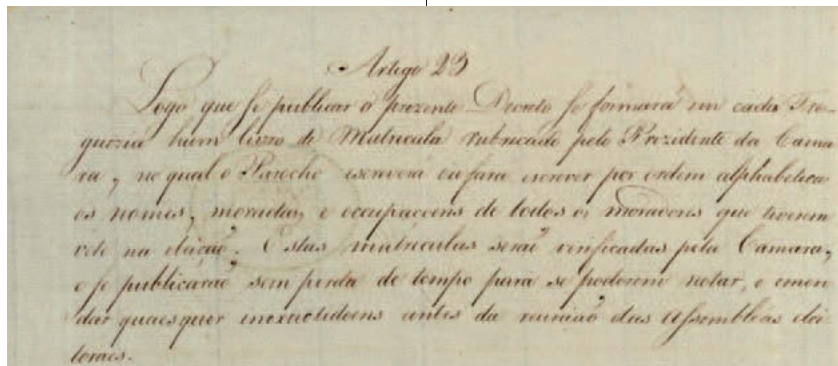 Artigo 23
Logo que se publicar o prezente Decreto se formará em cada Fre-
guezia hum livro de Matricula rubricado pelo Prezidente da Cama
ra, no qual o Parocho escreverá ou fará escrever por ordem alphabetica
os nomes, moradas, e occupaçoens de todos os moradores que tiverem
voto na eleição. Estas matriculas serão verificadas pela Camara,
e se publicarão sem perda de tempo para se poderem notar, e emen
dar quaesquer inexactidoens antes da reunião das Assembleas elei
toraes.